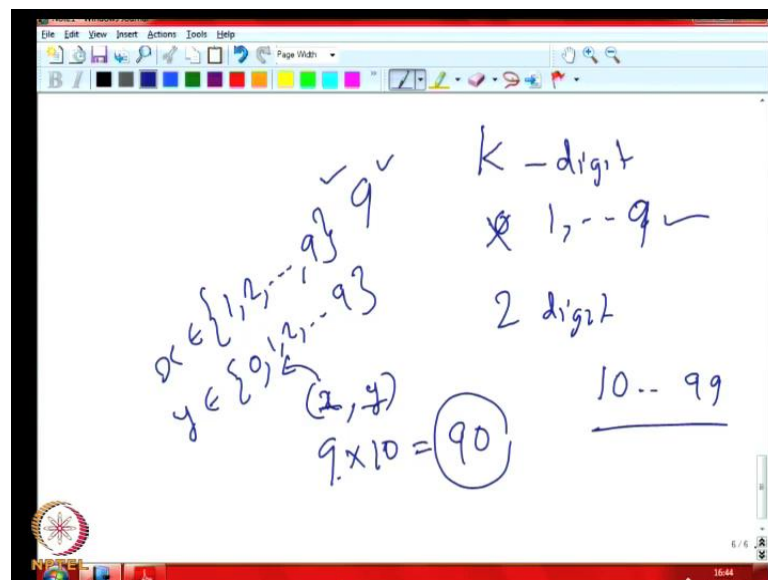 File Edit View Insert Actions Tools Help
Page Width
B I
K - digit
1, -- 9
2 digit
10 -- 99
9
x ∈ {1, 2, ---, 9}
y ∈ {0, 1, 2, --- 9}
(x, y)
9 × 10 = 90
NPTEL
6 / 6
16:44